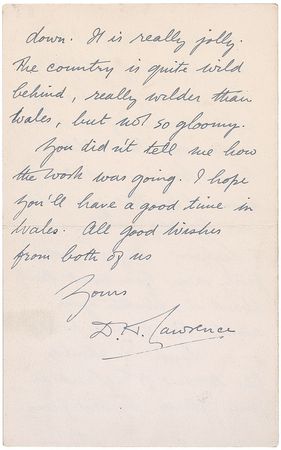 down. It is really jolly.
The country is quite wild
behind, really wilder than
Wales, but not so gloomy.
You didn't tell me how
the work was going. I hope
you'll have a good time in
Wales. All good wishes
from both of us
Yours
D. H. Lawrence